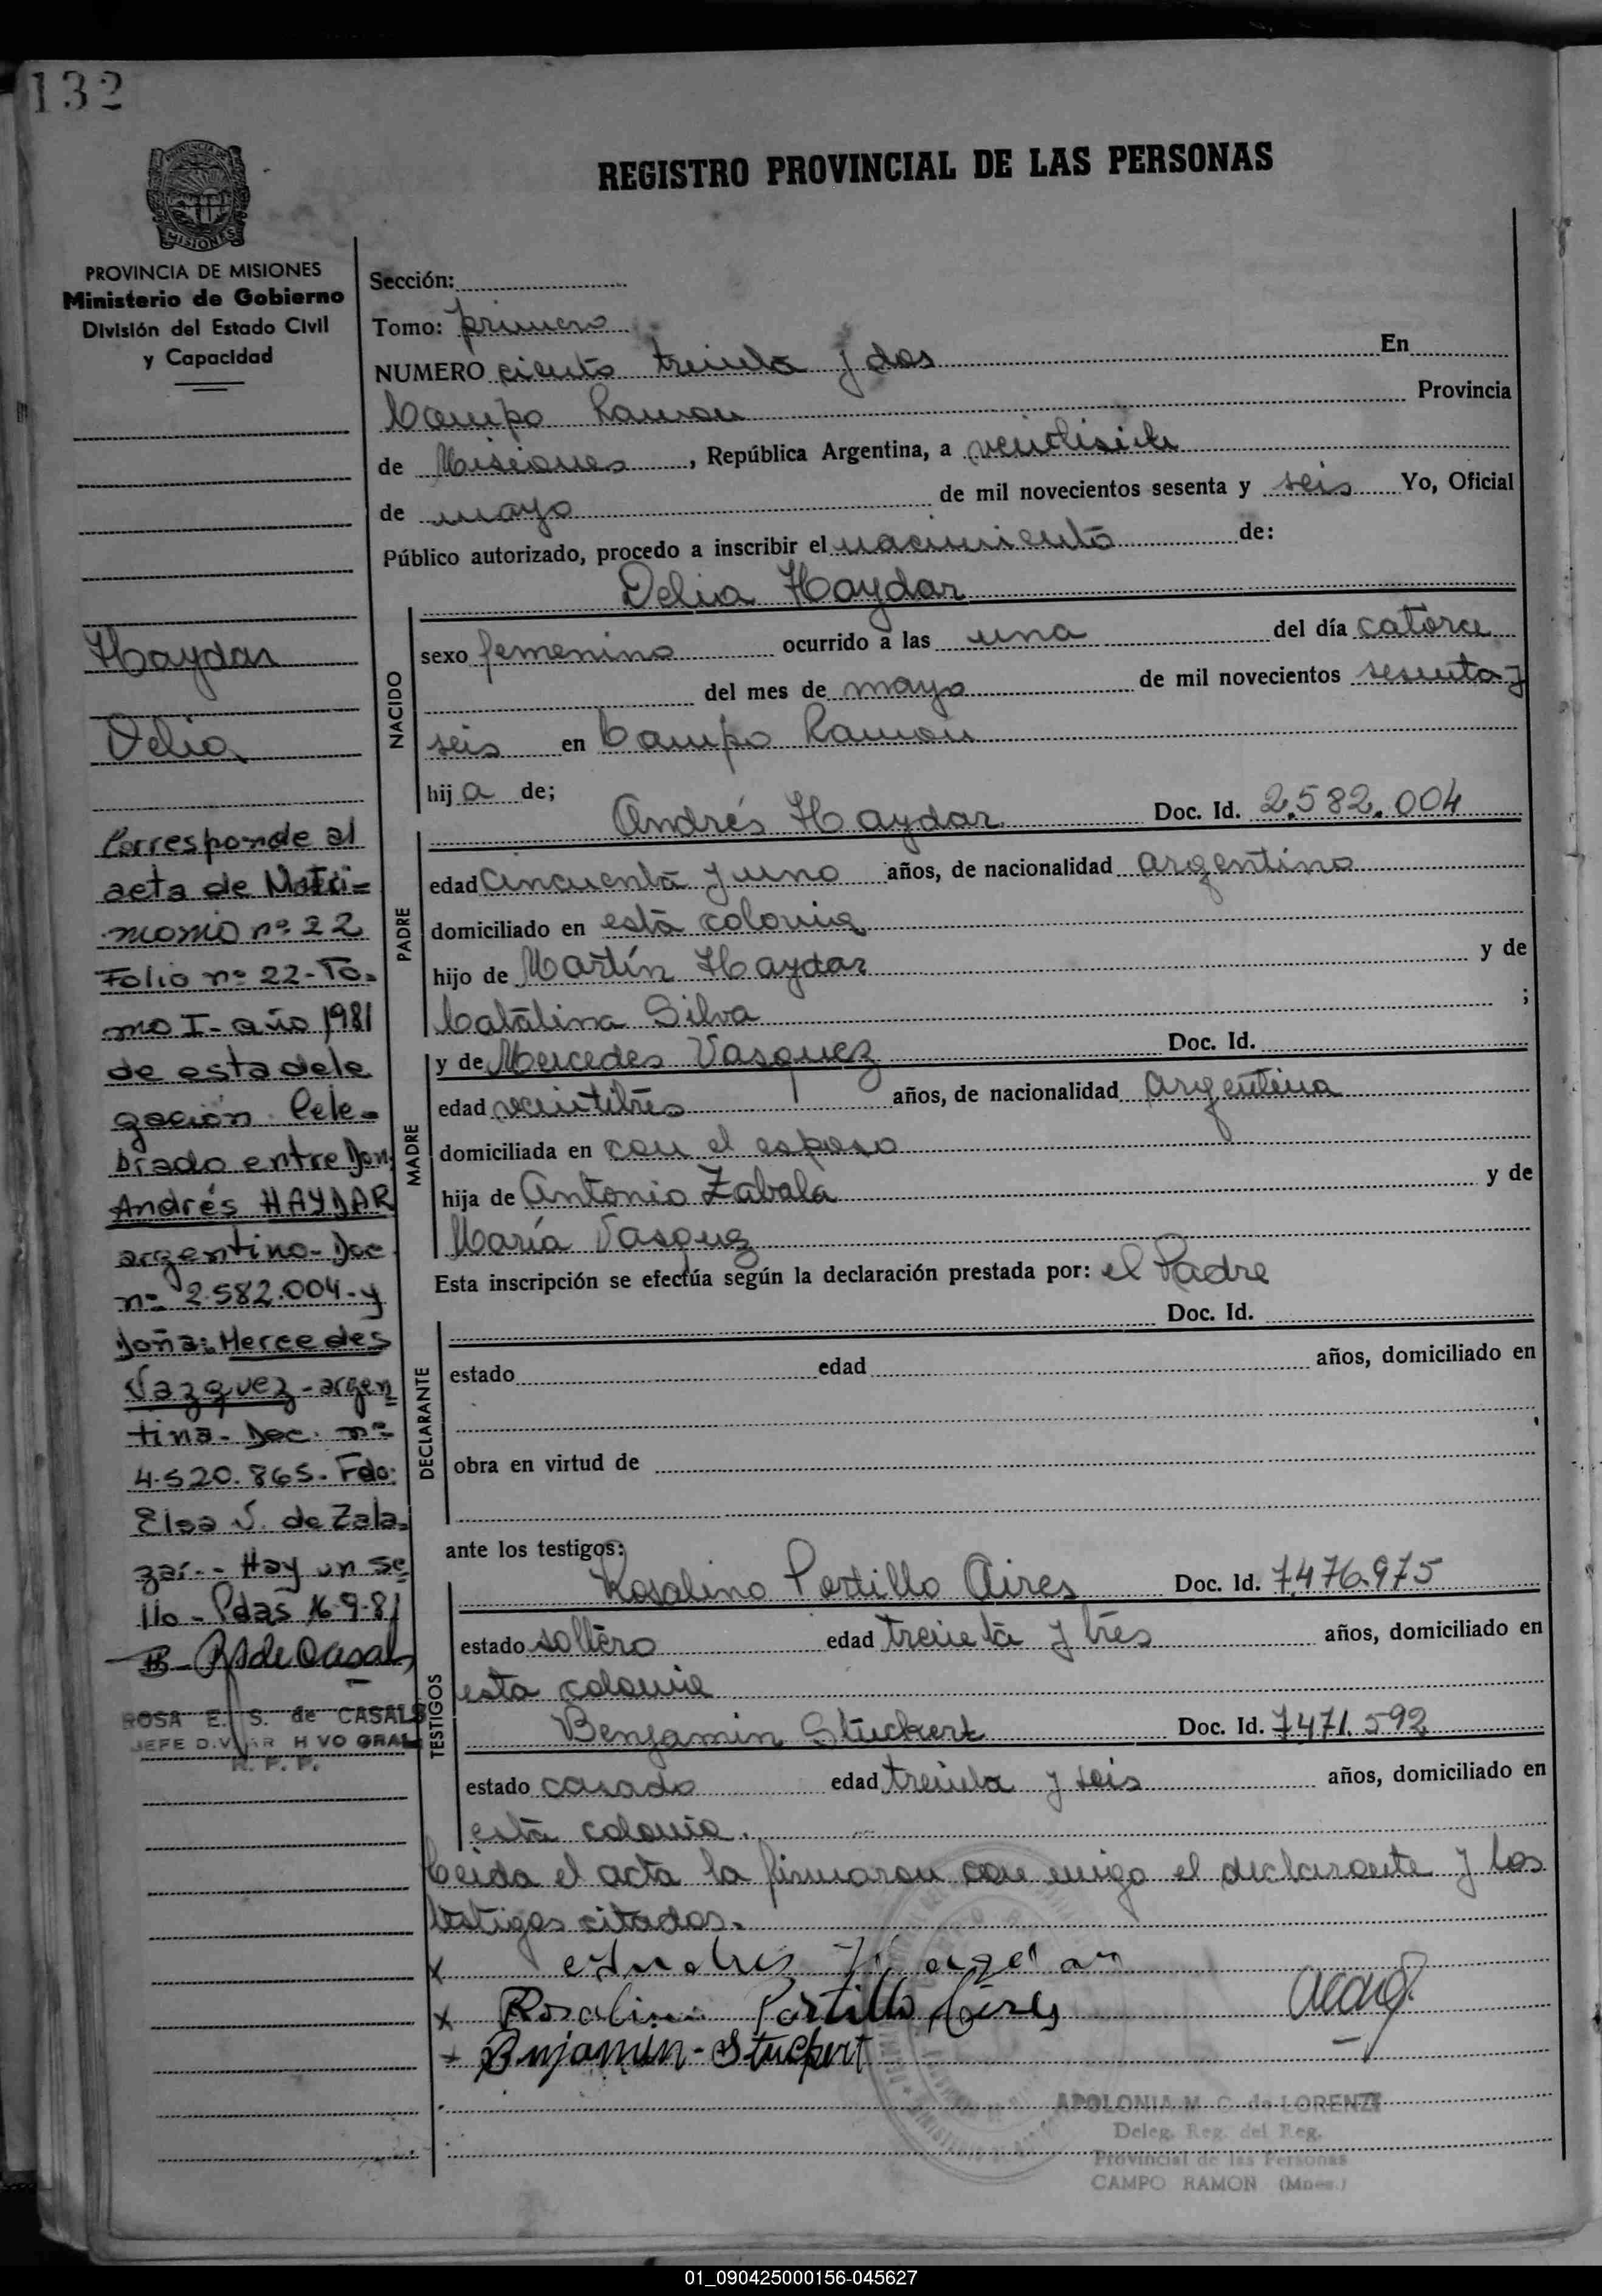 132
REGISTRO PROVINCIAL DE LAS PERSONAS
MISIONES
PROVINCIA DE MISIONES
Ministerio de Gobierno
División del Estado Civil
y Capacidad
Haydar
Delia
Corresponde al
acta de Matri=
monio nº 22
Folio nº 22-To-
mo I- año 1981
de esta dele
gación. Cele=
brado entre Don
Andrés HAYDAR
argentino- Doc
nº 2.582.004-y
doña: Mercedes
Vazquez - argen
tina- Doc. nº
4.520.865- Fdo:
Elsa V. de Zala-
zar.- Hay un se
llo - Pdas 16-9-81
ROSA E. S. de CASALS
JEFE DIV. ARCHIVO GRAL
R. P. P.
Sección:
Tomo: primero
NUMERO ciento treinta y dos En
Campo Ramon Provincia
de Misiones, República Argentina, a veintisiete
de mayo de mil novecientos sesenta y seis Yo, Oficial
Público autorizado, procedo a inscribir el nacimiento de:
Delia Haydar
NACIDO
sexo femenino ocurrido a las una del día catorce
del mes de mayo de mil novecientos sesenta y
seis en Campo Ramon
hija de;
Andrés Haydar Doc. Id. 2.582.004
PADRE
edad cincuenta y uno años, de nacionalidad argentino
domiciliado en esta colonia
hijo de Martín Haydar y de
Catalina Silva ;
y de Mercedes Vasquez Doc. Id.
MADRE
edad veintitres años, de nacionalidad argentina
domiciliada en con el esposo
hija de Antonio Zabala y de
María Vasquez
Esta inscripción se efectúa según la declaración prestada por: el Padre
Doc. Id.
DECLARANTE
estado edad años, domiciliado en
obra en virtud de
ante los testigos:
Rosalino Portillo Aires Doc. Id. 7.476.975
TESTIGOS
estado soltero edad treinta y tres años, domiciliado en
esta colonia
Benjamin Stuckert Doc. Id. 7.471.592
estado casado edad treinta y seis años, domiciliado en
esta colonia.
Leida el acta la firmaron con migo el declarante y los
testigos citados.
x
x Rosalino Portillo Aires
x Benjamin-Stuckert
APOLONIA M. C. de LORENZI
Deleg. Reg. del Reg.
Provincial de las Personas
CAMPO RAMON (Mnes.)
01_090425000156-045627